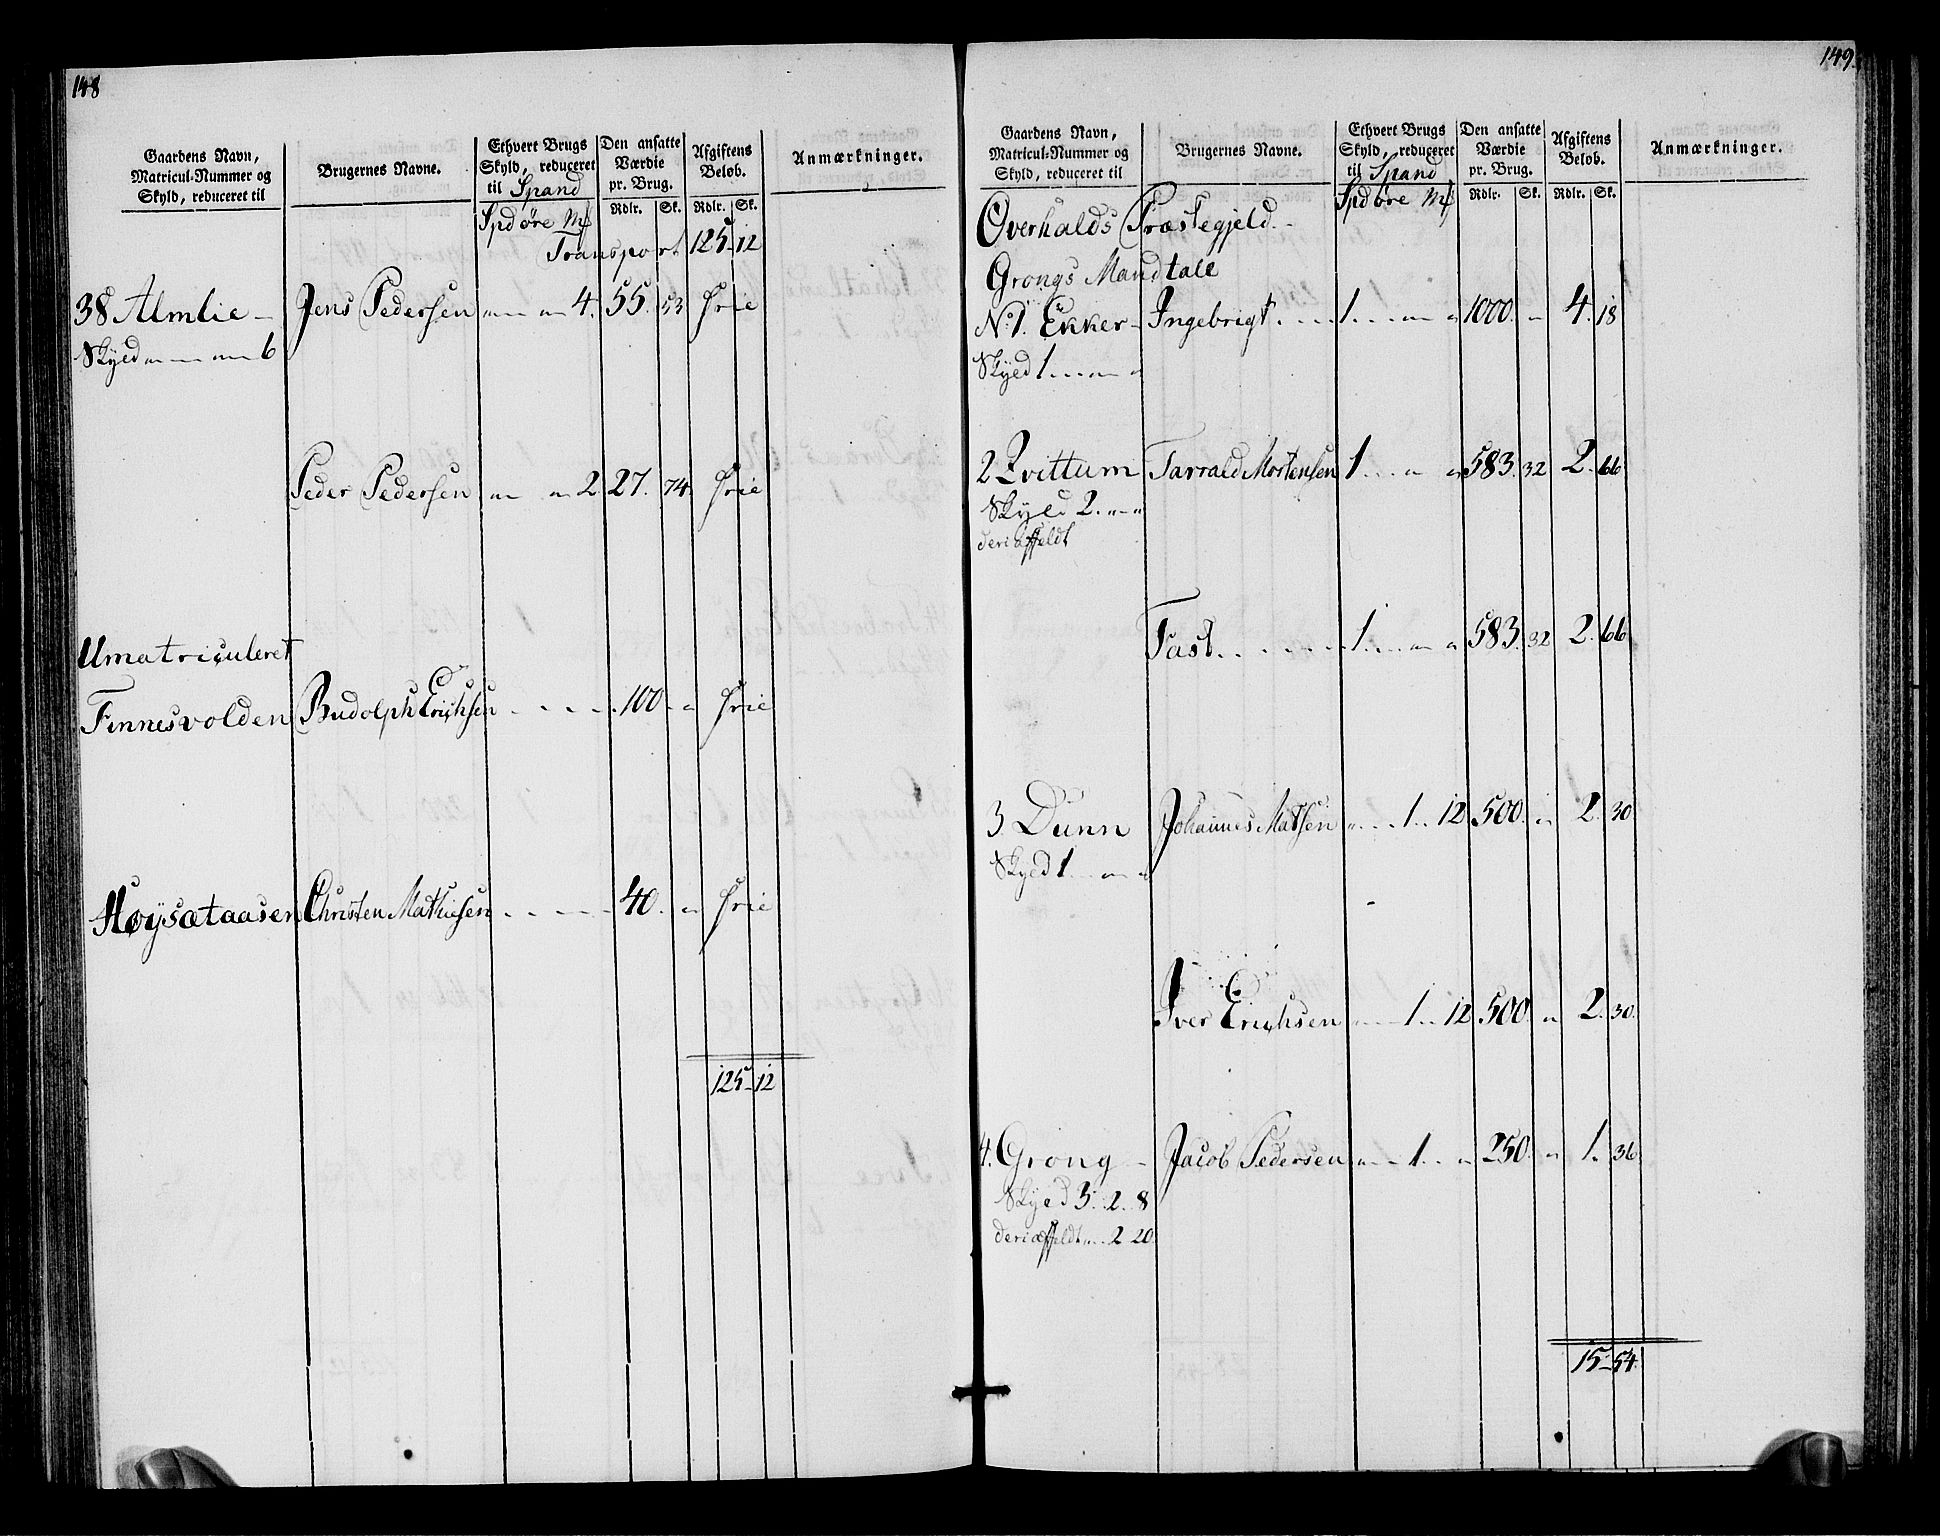 148
Gaardens Navn, Matricul-Nummer og Skyld, reduceret til
Brugernes Navne.
Ethvert Brugs Skyld, reduceret til Spand
Den ansatte Værdie pr. Brug.
Afgiftens Beløb.
Anmærkninger.
Spd øre Mk Rdlr. Sk. Rdlr. Sk.
Transport 125 - 12
38 Almlie - Jens Pedersen " — " — 4. 55. 53 Frie
Skyld " — " — 6
Peder Pedersen " — " — 2 27. 74. Frie
Umatriculeret
Finnesvolden Rudolph Erichsen . . . . 100 - " Frie
Høysætaasen Christen Mathiesen . . . . 40. " Frie
125 - 12
149.
Gaardens Navn, Matricul-Nummer og Skyld, reduceret til
Brugernes Navne.
Ethvert Brugs Skyld, reduceret til Spand
Den ansatte Værdie pr. Brug.
Afgiftens Beløb.
Anmærkninger.
Spd øre Mk Rdlr. Sk. Rdlr. Sk.
Overhalds Præstegjeld. -
Grongs Mandtale
No 1. Ekker - Ingebrigt . . . . 1 . . . " — " 1000. " 4. 18
Skyld 1 . . . " — "
2 Qvittum Tarrald Mortensen 1 . . . " " 583. 32 2. 66
Skyld 2. " — "
deri øffeldt
Fast . . . . . . 1 . . . " — " 583. 32 2. 66
3 Dunn Johannes Matsen " . . . 1 . . 12 500. " 2. 30
Skyld 1 . . . " — "
Iver Erichsen " — 1 . . 12 500. " 2. 30.
4. Grong - Jacob Pedersen " — 1 . . " 250. " 1. 36
Skyld 3. 2. 8
deri øffeldt " . . 2 20.
15 - 54.